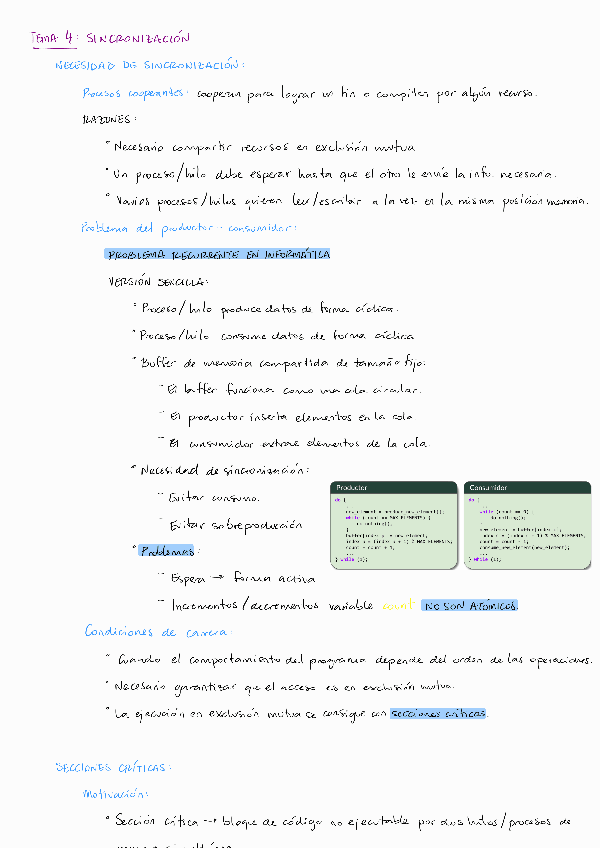 TEMA 4: SINCRONIZACIÓN
NECESIDAD DE SINCRONIZACIÓN:
Procesos cooperantes: cooperan para lograr un fin o compiten por algún recurso.
RAZONES:
° Necesario compartir recursos en exclusión mutua
° Un proceso/hilo debe esperar hasta que el otro le envíe la info. necesaria.
° Varios procesos/hilos quieren leer/escribir a la vez en la misma posición memoria.
Problema del productor-consumidor:
PROBLEMA RECURRENTE EN INFORMÁTICA
VERSIÓN SENCILLA:
° Proceso/hilo produce datos de forma cíclica.
° Proceso/hilo consume datos de forma cíclica
° Buffer de memoria compartida de tamaño fijo:
- El buffer funciona como una cola circular.
- El productor inserta elementos en la cola
- El consumidor extrae elementos de la cola
° Necesidad de sincronización:
- Evitar consumo.
- Evitar sobreproducción
Productor
do {
new_element = produce_new_element();
while (count == MAX_ELEMENTS) {
do_nothing();
}
buffer[index_p] = new_element;
index_p = (index_p + 1) % MAX_ELEMENTS;
count = count + 1;
...
} while (1);
Consumidor
do {
while (count == 0) {
do_nothing();
}
new_element = buffer[index_c];
index_c = (index_c + 1) % MAX_ELEMENTS;
count = count - 1;
consume_new_element(new_element);
...
} while (1);
° Problemas:
- Espera → forma activa
- Incrementos/decrementos variable count NO SON ATÓMICOS.
Condiciones de carrera:
° Cuando el comportamiento del programa depende del orden de las operaciones.
° Necesario garantizar que el acceso es en exclusión mutua.
° La ejecución en exclusión mutua se consigue con secciones críticas.
SECCIONES CRÍTICAS:
Motivación:
° Sección crítica → bloque de código no ejecutable por dos hilos/procesos de